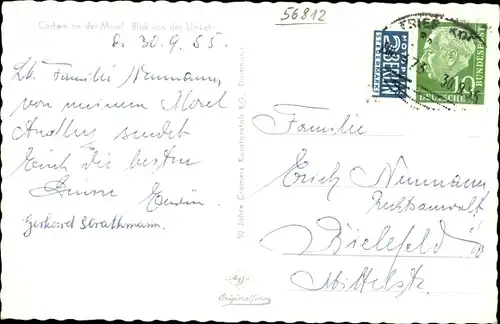 Cochem an der Mosel Blick von der Umkehr
56812
d. 30.9.55.
Lb. Familie Neumann,
von meinem Mosel
sendet
Euch die besten
Grüsse Erwin.
Gerhard Strathmann.
50 Jahre Cramers Kunstanstalt KG. Dortmund
Originalfoto
NOTOPFER
2 BERLIN
STEUERMARKE
TRIER
30.9.55
10
DEUTSCHE BUNDESPOST
Familie
Erich Neumann
Rechtsanwalt
Bielefeld
Mittelstr.